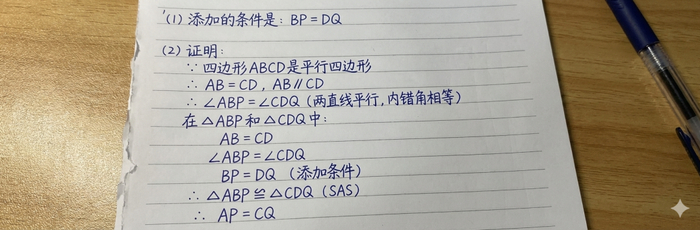 (1) 添加的条件是: BP = DQ
(2) 证明:
∵ 四边形ABCD是平行四边形
∴ AB = CD, AB∥CD
∴ ∠ABP = ∠CDQ (两直线平行,内错角相等)
在△ABP和△CDQ中:
AB = CD
∠ABP = ∠CDQ
BP = DQ (添加条件)
∴ △ABP ≌ △CDQ (SAS)
∴ AP = CQ